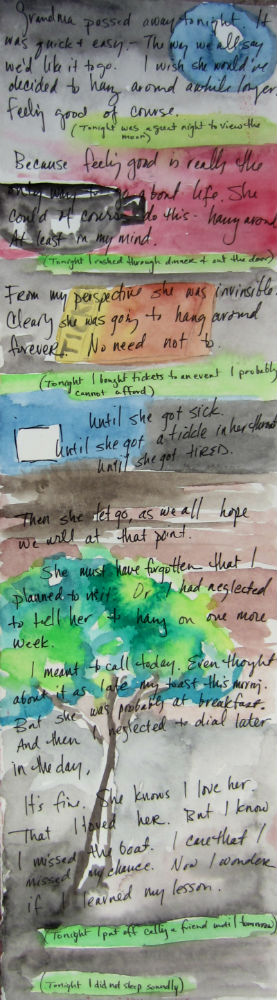 Grandma passed away tonight. It
was quick & easy. - The way we all say
we'd like it to go. I wish she would've
decided to hang around awhile longer.
Feeling good of course.
(Tonight was a great night to view the
moon)
Because feeling good is really the
only way to go about life. She
could of course do this - hang around
At least in my mind.
(Tonight I rushed through dinner & out the door)
From my perspective she was invincible.
Clearly she was going to hang around
forever. No need not to.
(Tonight I bought tickets to an event I probably
cannot afford)
Until she got sick.
Until she got a tickle in her throat
Until she got tired.
Then she let go, as we all hope
we will at that point.
She must have forgotten that I
planned to visit. Or I had neglected
to tell her to hang on one more
week.
I meant to call today. Even thought
about it as I ate my toast this morning.
But she was probably at breakfast.
And then I neglected to dial later
in the day.
It's fine. She knows I love her.
That I loved her. But I know
I missed the boat. I care that I
missed my chance. Now I wonder
if I learned my lesson.
(Tonight I put off calling a friend until tomorrow)
(Tonight I did not sleep soundly)